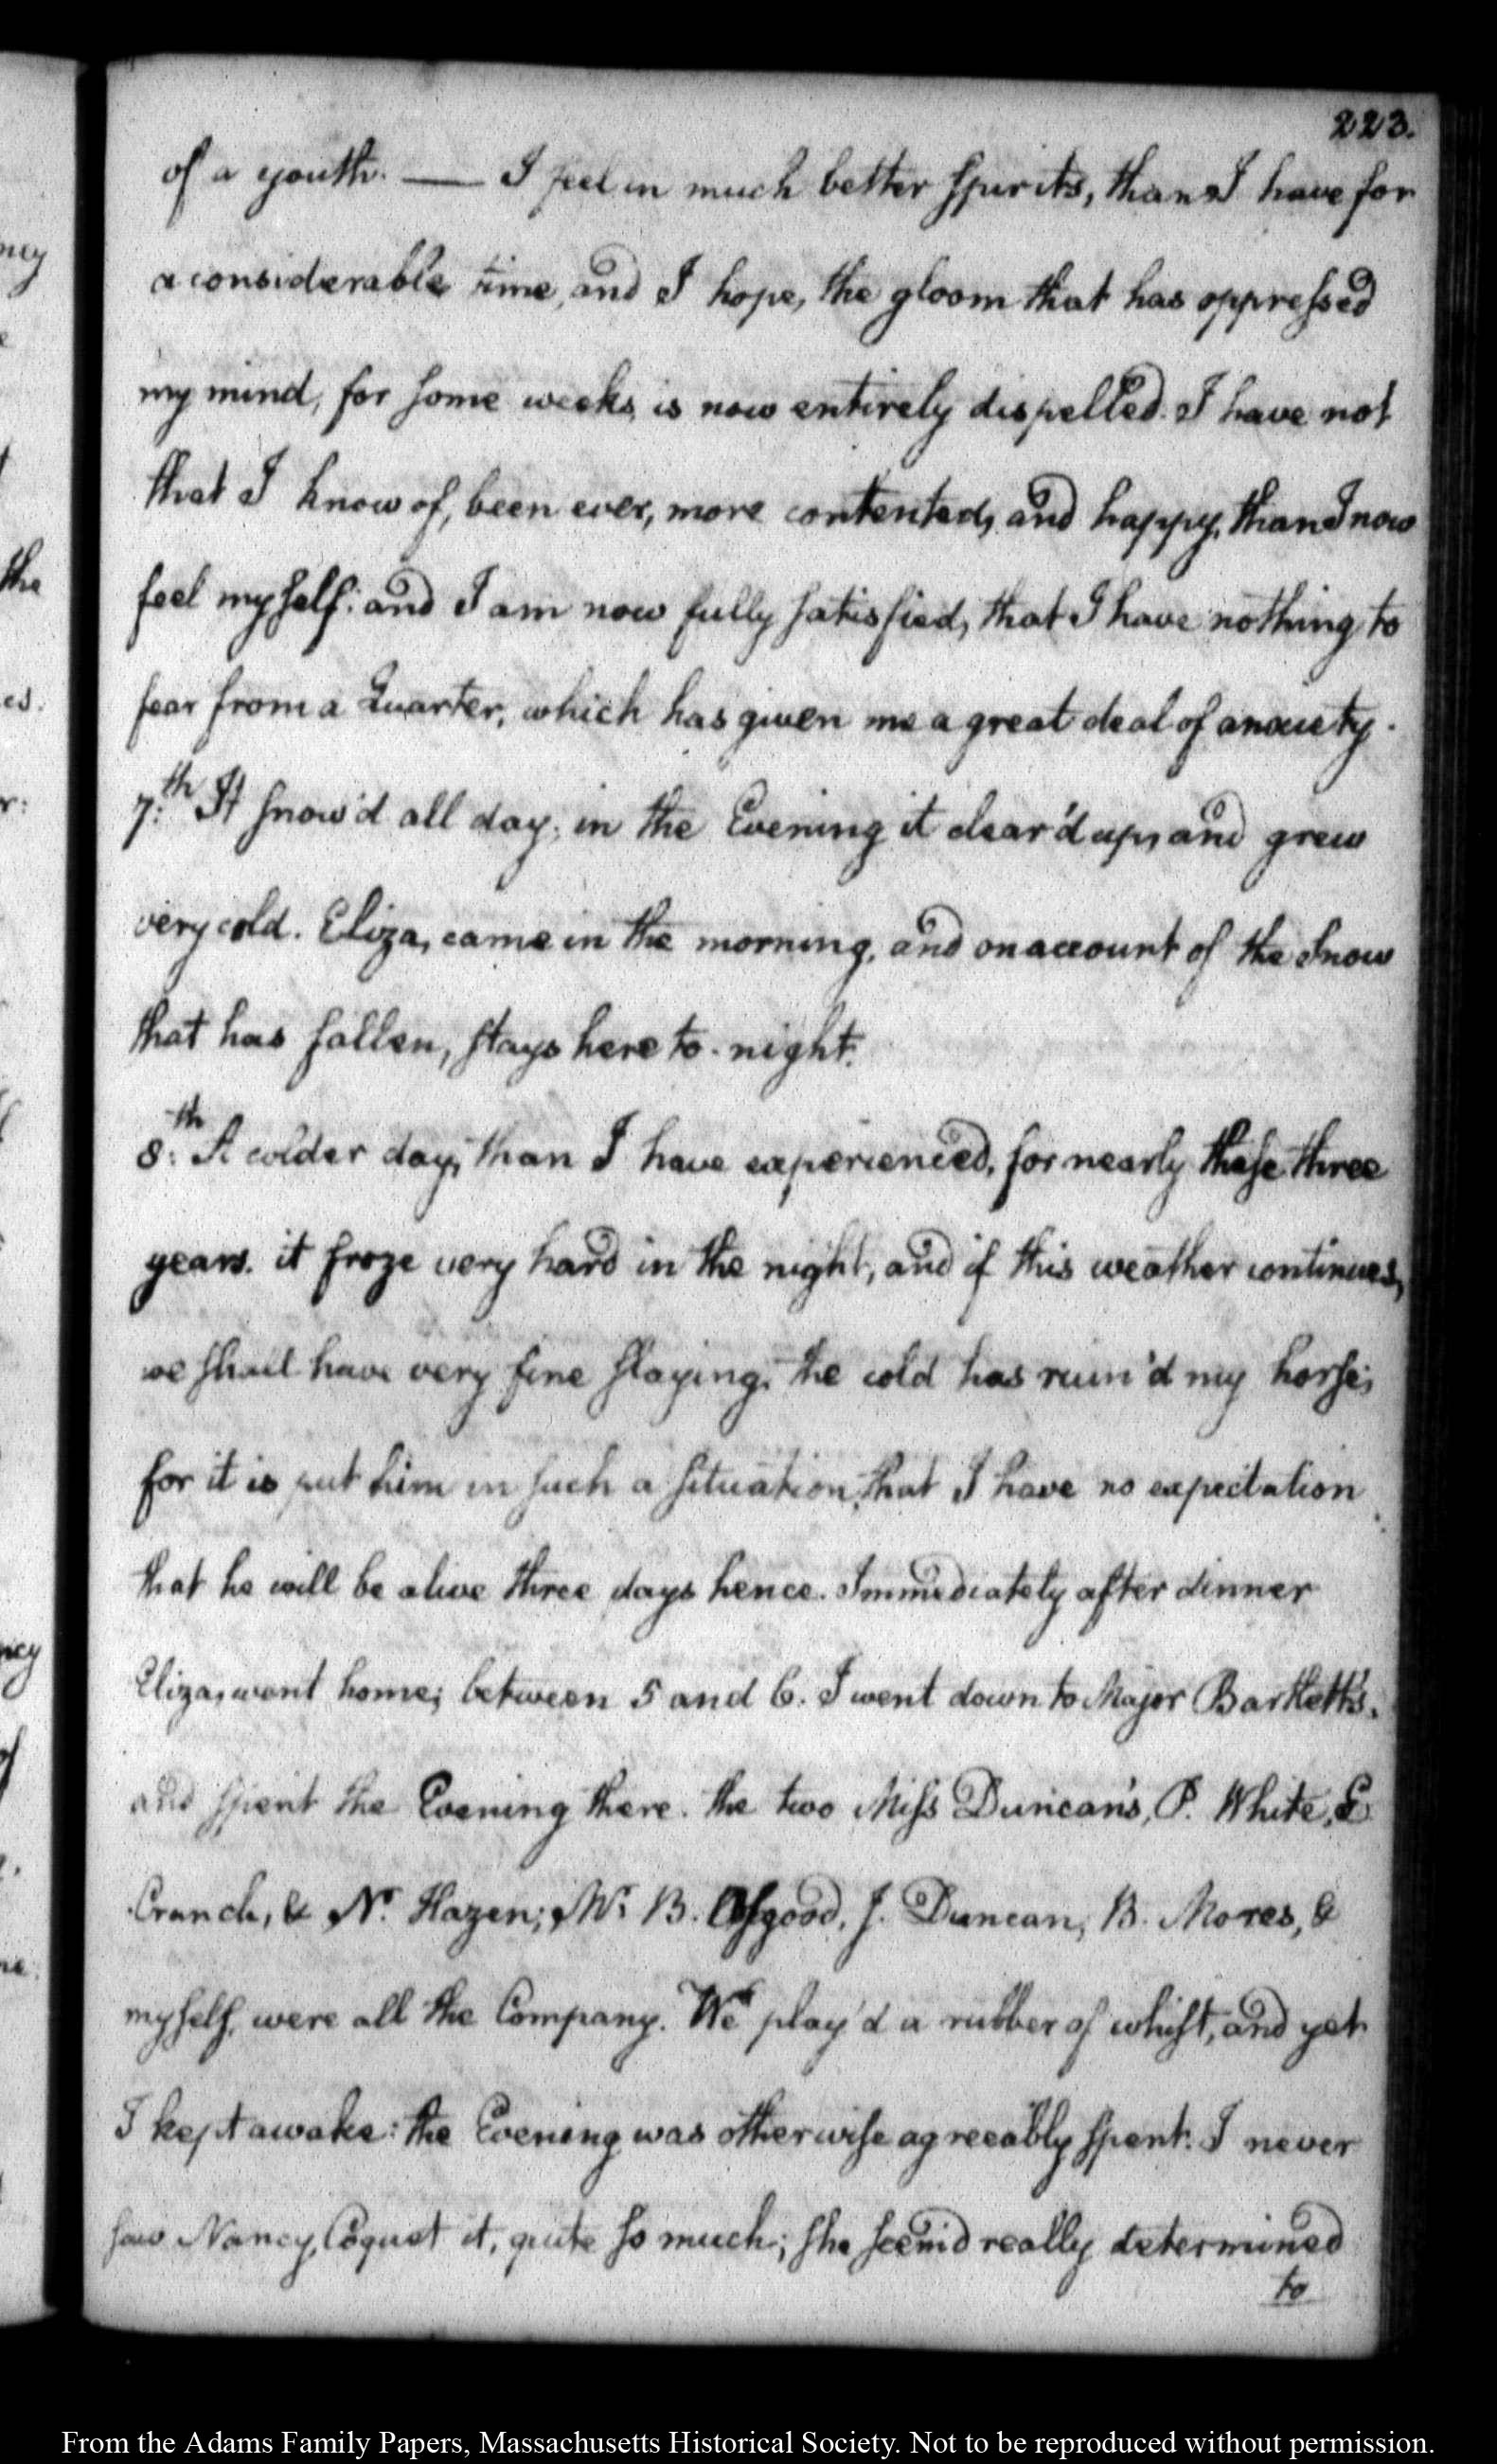 223.
of a youth. — I feel in much better spirits, than I have for
a considerable time, and I hope, the gloom that has oppressed
my mind, for some weeks, is now entirely dispelled. I have not
that I know of, been ever, more contented, and happy, than I now
feel myself: and I am now fully satisfied, that I have nothing to
fear from a Quarter, which has given me a great deal of anxiety.
7:th It snow'd all day: in the Evening it clear'd up, and grew
very cold. Eliza, came in the morning, and on account of the Snow
that has fallen, stays here to-night.
8:th A colder day, than I have experienced, for nearly these three
years. it froze very hard in the night, and if this weather continues,
we shall have very fine slaying. the cold has ruin'd my horse;
for it is put him in such a situation, that I have no expectation
that he will be alive three days hence. Immediately after dinner
Eliza, went home; between 5 and 6. I went down to Major Bartlett's.
and spent the Evening there. the two Miss Duncan's, P. White, E
Cranch, & N. Hazen; Mr. B. Osgood, J. Duncan, B. Mores, &
myself, were all the Company. We play'd a rubber of whist, and yet
I kept awake: the Evening was otherwise agreeably spent. I never
saw Nancy, Coquet it, quite so much; she seem'd really determined
to
ncy
the
es.
r:
ncy
of
From the Adams Family Papers, Massachusetts Historical Society. Not to be reproduced without permission.